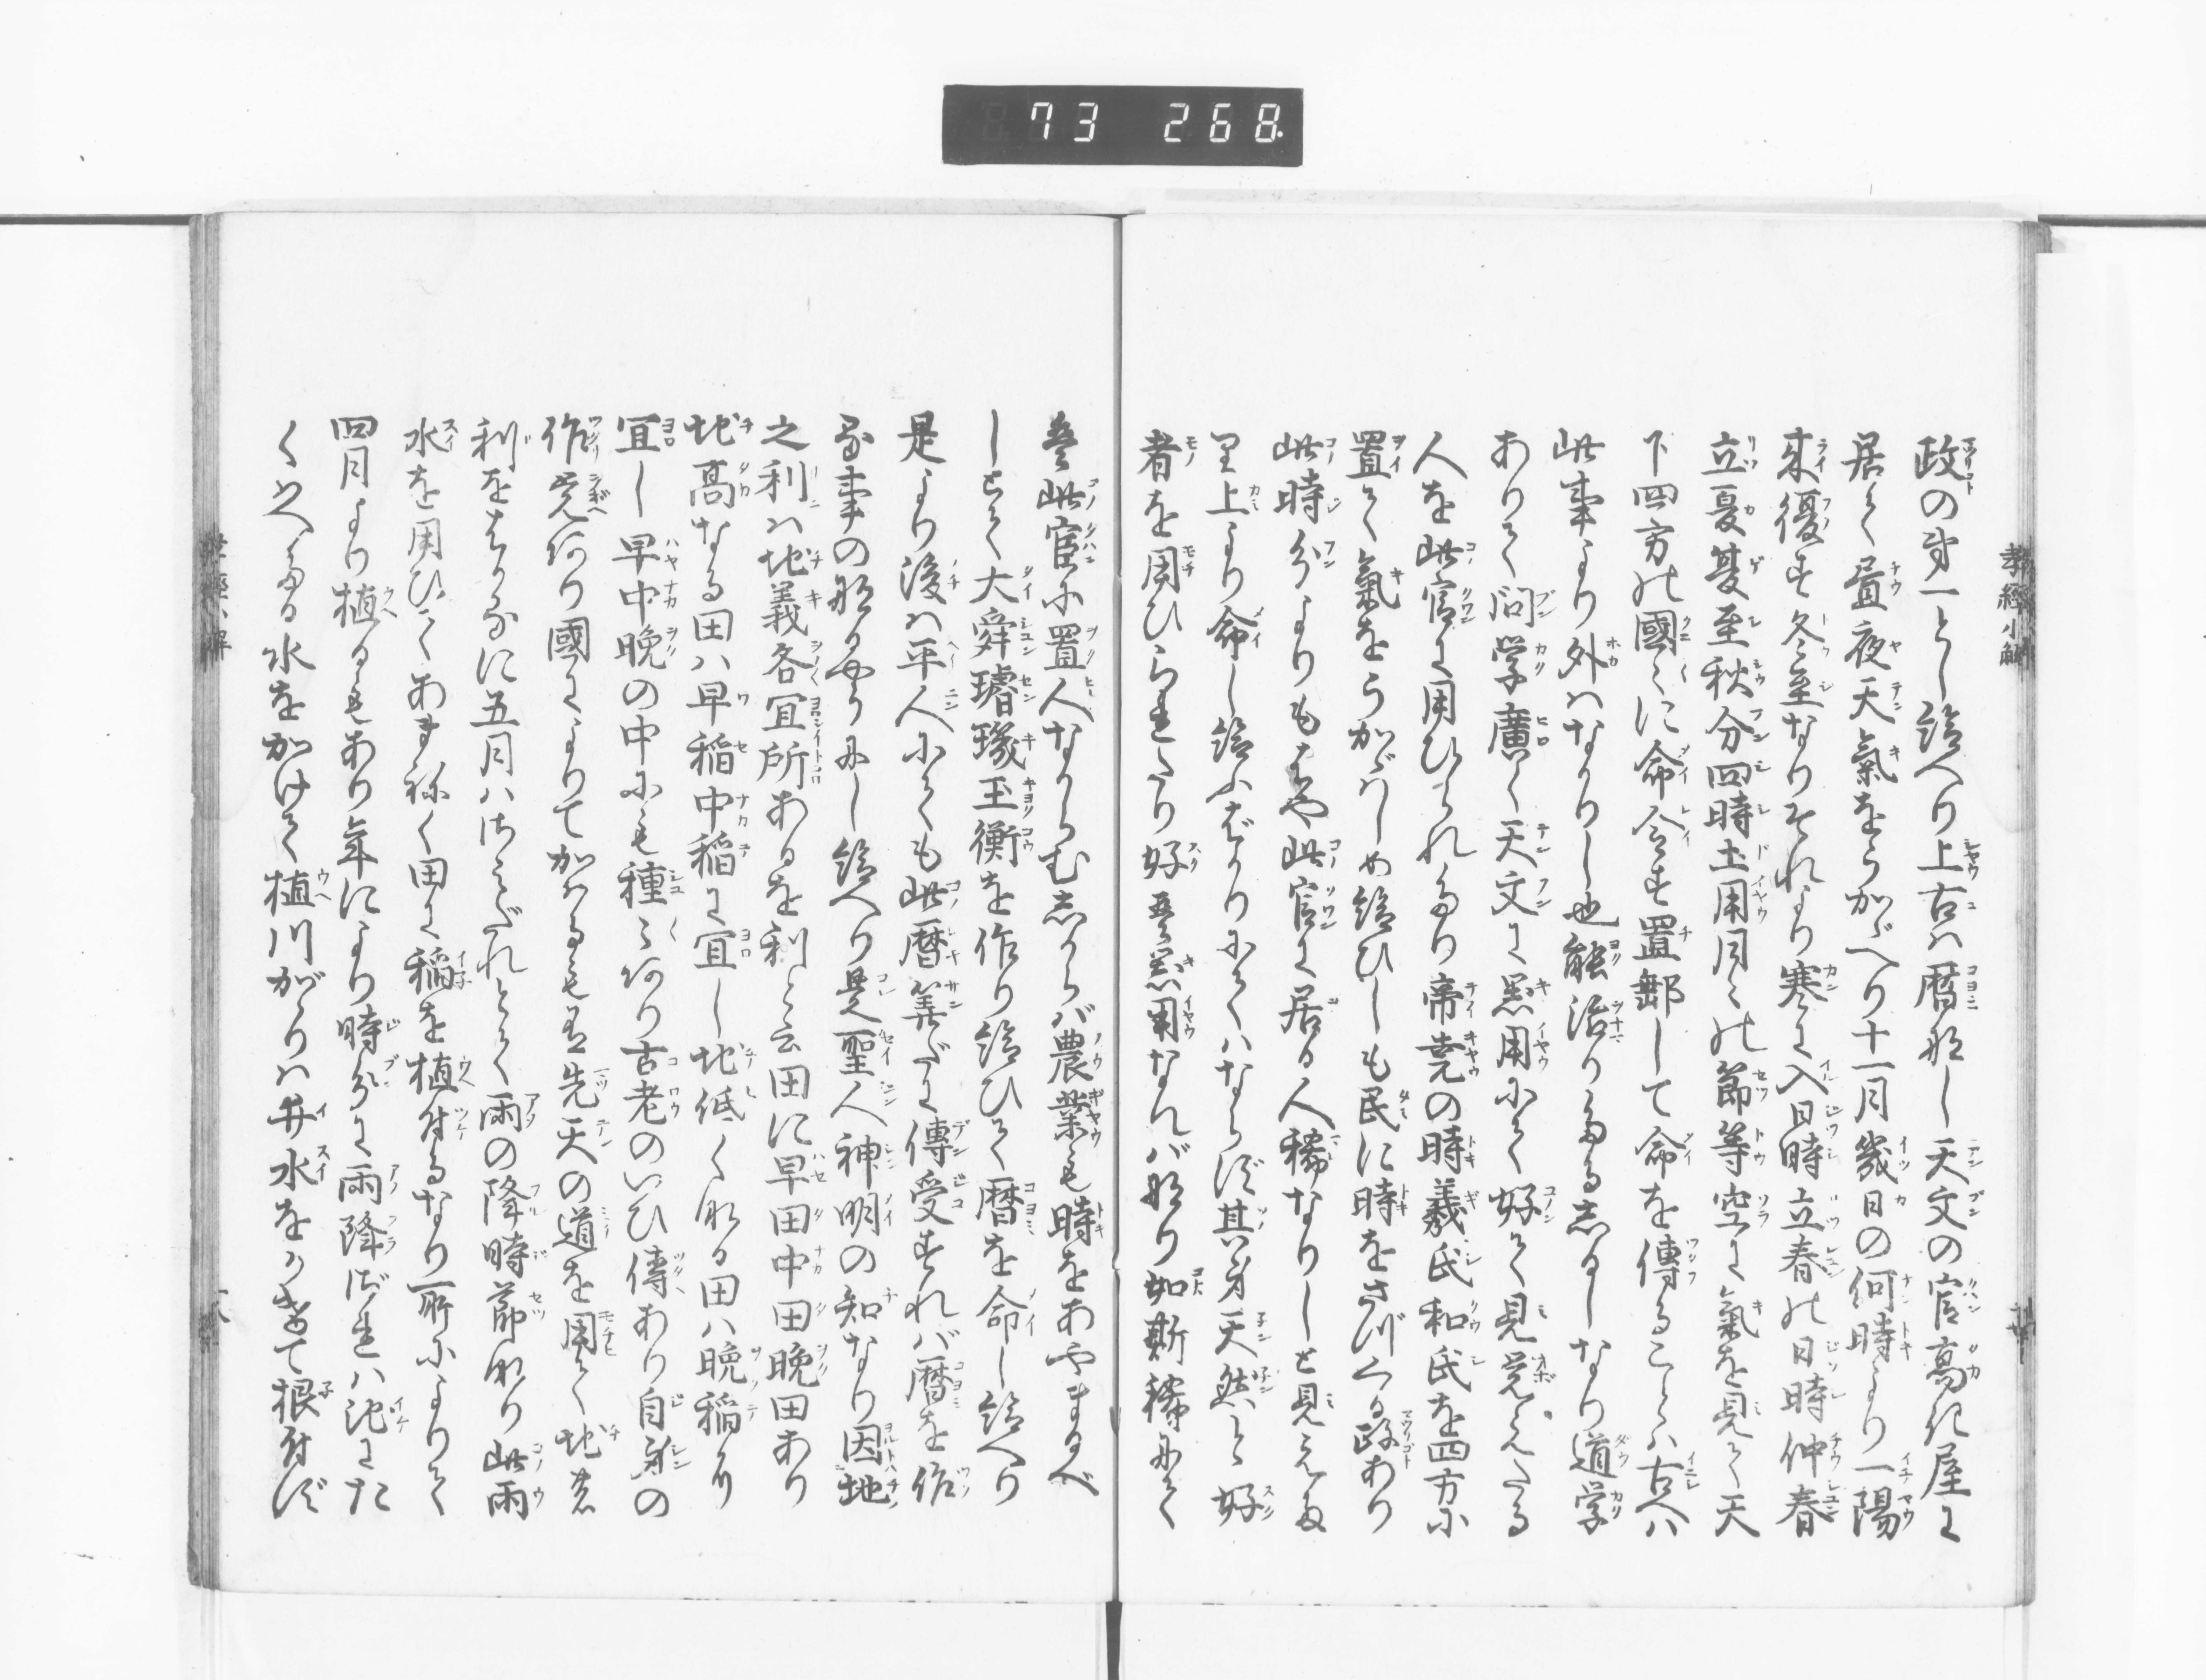 73 268
孝經小解
政の第一とし給へり上古ハ暦なし天文の官高き屋に
居て晝夜天氣をうかゞへり十一月幾日の何時より一陽
来復す冬至なりそれより寒に入日時立春の日時仲春
立夏夏至秋分四時土用月々の節等空に氣を見て天
下四方の國々に命令す置郵して命を傳ることハ古へハ
此事より外ハなかりし也能治りたるしるしなり道学
ありて問学廣く天文に器用にて好て見覚えたる
人を此官に用ひられたり帝堯の時羲氏和氏を四方に
置て氣をうかゞハしめ給ひしも民に時をさづくる政あり
此時分よりもはや此官に居る人稀なりしと見えた
り上より命し給ふばかりにてハならず其身天然と好
者を用ひられたり好無器用なれバなり如斯稀にて
無此官に置人なからむしからバ農業も時をあやまるべ
しとて大舜璿璣玉衡を作り給ひて暦を命し給へり
是より後ハ平人にても此暦筭だに傳受すれバ暦を作
る事のなるやうにし給へり是聖人神明の知なり因地
之利ハ地義各宜所あるを利と云田に早田中田晩田あり
地高なる田ハ早稲中稲に宜し地低くなる田ハ晩稲に
宜し早中晩の中にも種々あり古老のいひ傳あり自身の
作覚あり國によりてかハるも有先天の道を用て地の
利をはかるに五月ハさみだれとて雨の降時節なり此雨
水を用ひてあまねく田に稲を植付るなり所によりて
四月より植るもあり年により時分に雨降ざれハ池にた
くハへたる水をかけて植川がゝりハ井水をかけて根付ず